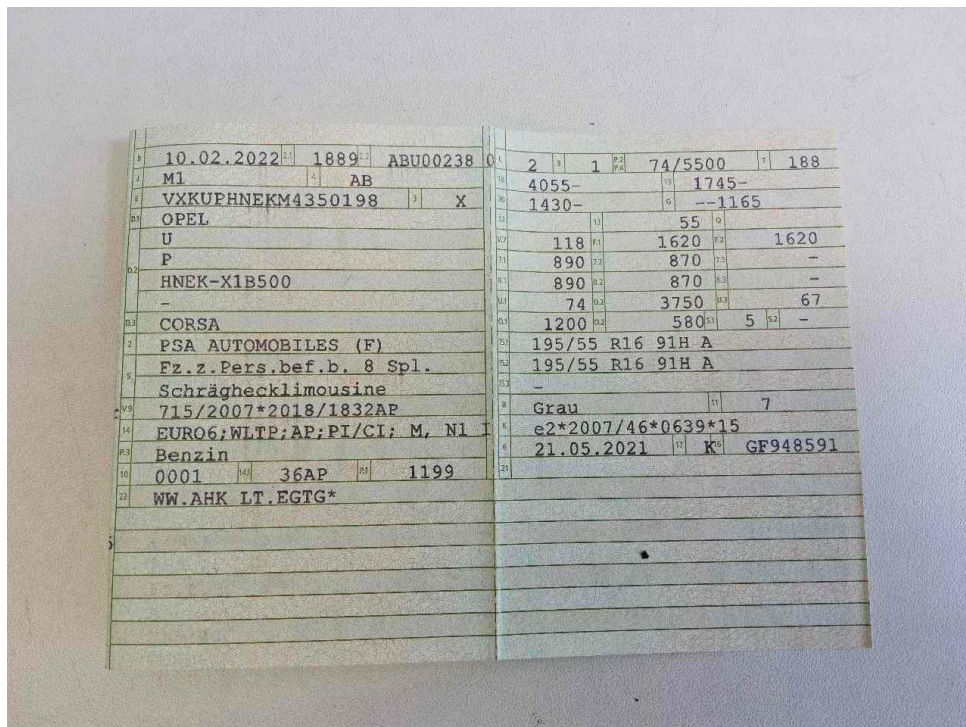 B 10.02.2022 2.1 1889 2.2 ABU00238 0
J M1 4 AB
E VXKUPHNEKM4350198 3 X
D.1 OPEL
U
P
D.2 HNEK-X1B500
-
D.3 CORSA
2 PSA AUTOMOBILES (F)
5 Fz.z.Pers.bef.b. 8 Spl.
Schräghecklimousine
V.9 715/2007*2018/1832AP
14 EURO6;WLTP;AP;PI/CI; M, N1 I
P.3 Benzin
10 0001 14.1 36AP P.1 1199
22 WW.AHK LT.EGTG*
L 2 9 1 P.2 P.4 74/5500 T 188
18 4055- 19 1745-
20 1430- G --1165
12 13 55 Q
V.7 118 F.1 1620 F.2 1620
7.1 890 7.2 870 7.3 -
8.1 890 8.2 870 8.3 -
U.1 74 U.2 3750 U.3 67
O.1 1200 O.2 580 S.1 5 S.2 -
15.1 195/55 R16 91H A
15.2 195/55 R16 91H A
15.3 -
R Grau 11 7
K e2*2007/46*0639*15
6 21.05.2021 17 K 16 GF948591
21